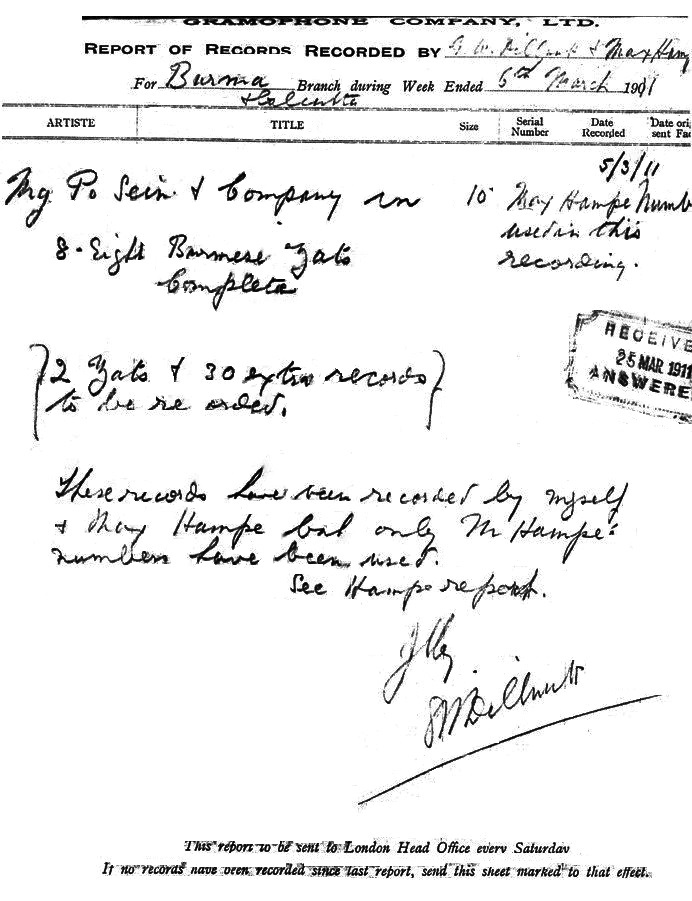 GRAMOPHONE COMPANY, LTD.
REPORT OF RECORDS RECORDED BY G. W. Dillnutt & Max Hamp
For Burma Branch during Week Ended 5th March 1911
& Calcutta
ARTISTE TITLE Size Serial Number Date Recorded Date ori sent Fac
5/3/11
Mg. Po Sein & Company in 10 Max Hampe Numb
8 - Eight Burmese Zats used in this
Complete recording.
RECEIVE
25 MAR 1911
ANSWERE
2 Zats & 30 extra records
to be re orded.
These records have been recorded by myself
& Max Hampe but only M Hampe's
numbers have been used.
See Hampe report.
Dillnutt
This report to be sent to London Head Office every Saturday
If no records have been recorded since last report, send this sheet marked to that effect.